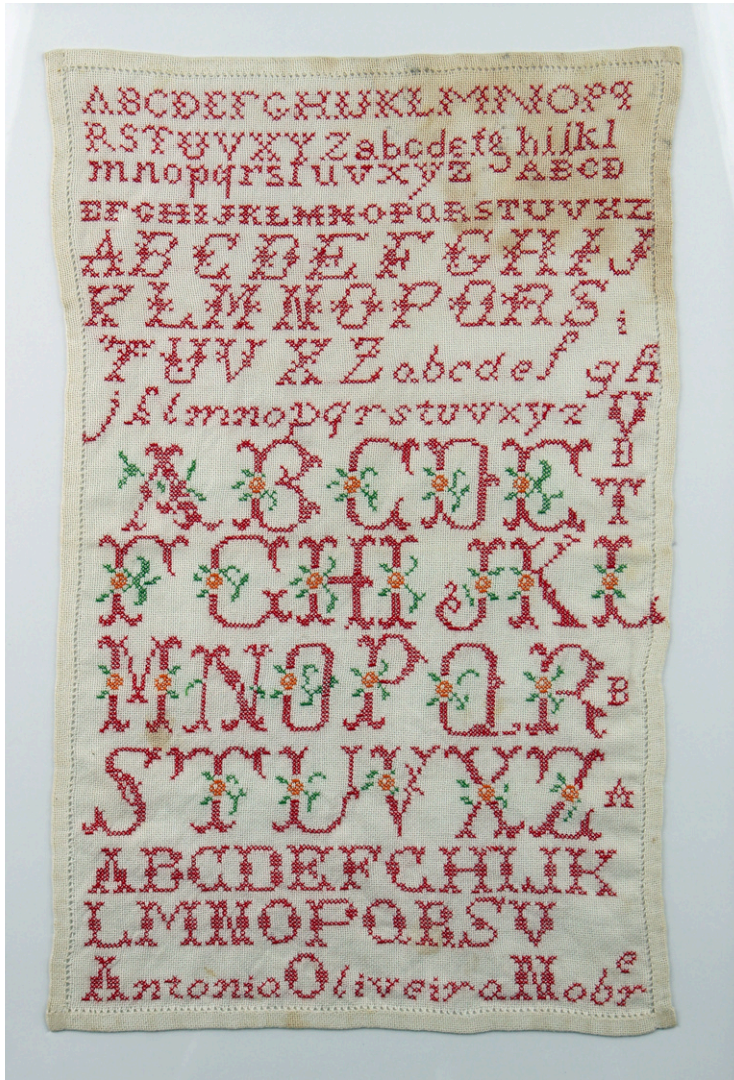 ABCDEFGHIJKLMNOPq
RSTUVXYZabcdefghijkl
mnopqrstuvxyz ABCD
EFGHIJKLMNOPQRSTUVXZ
ABCDEFGHIJ
KLMNOPQRS i
TUVXZabcdef g A
jklmnopqrstuvxyz U
D
ABCDE T
FGHIJKL
MNOPQR B
STUVXZ A
ABCDEFGHIJK
LMNOPQRSV
Antonia Oliveira Nobre